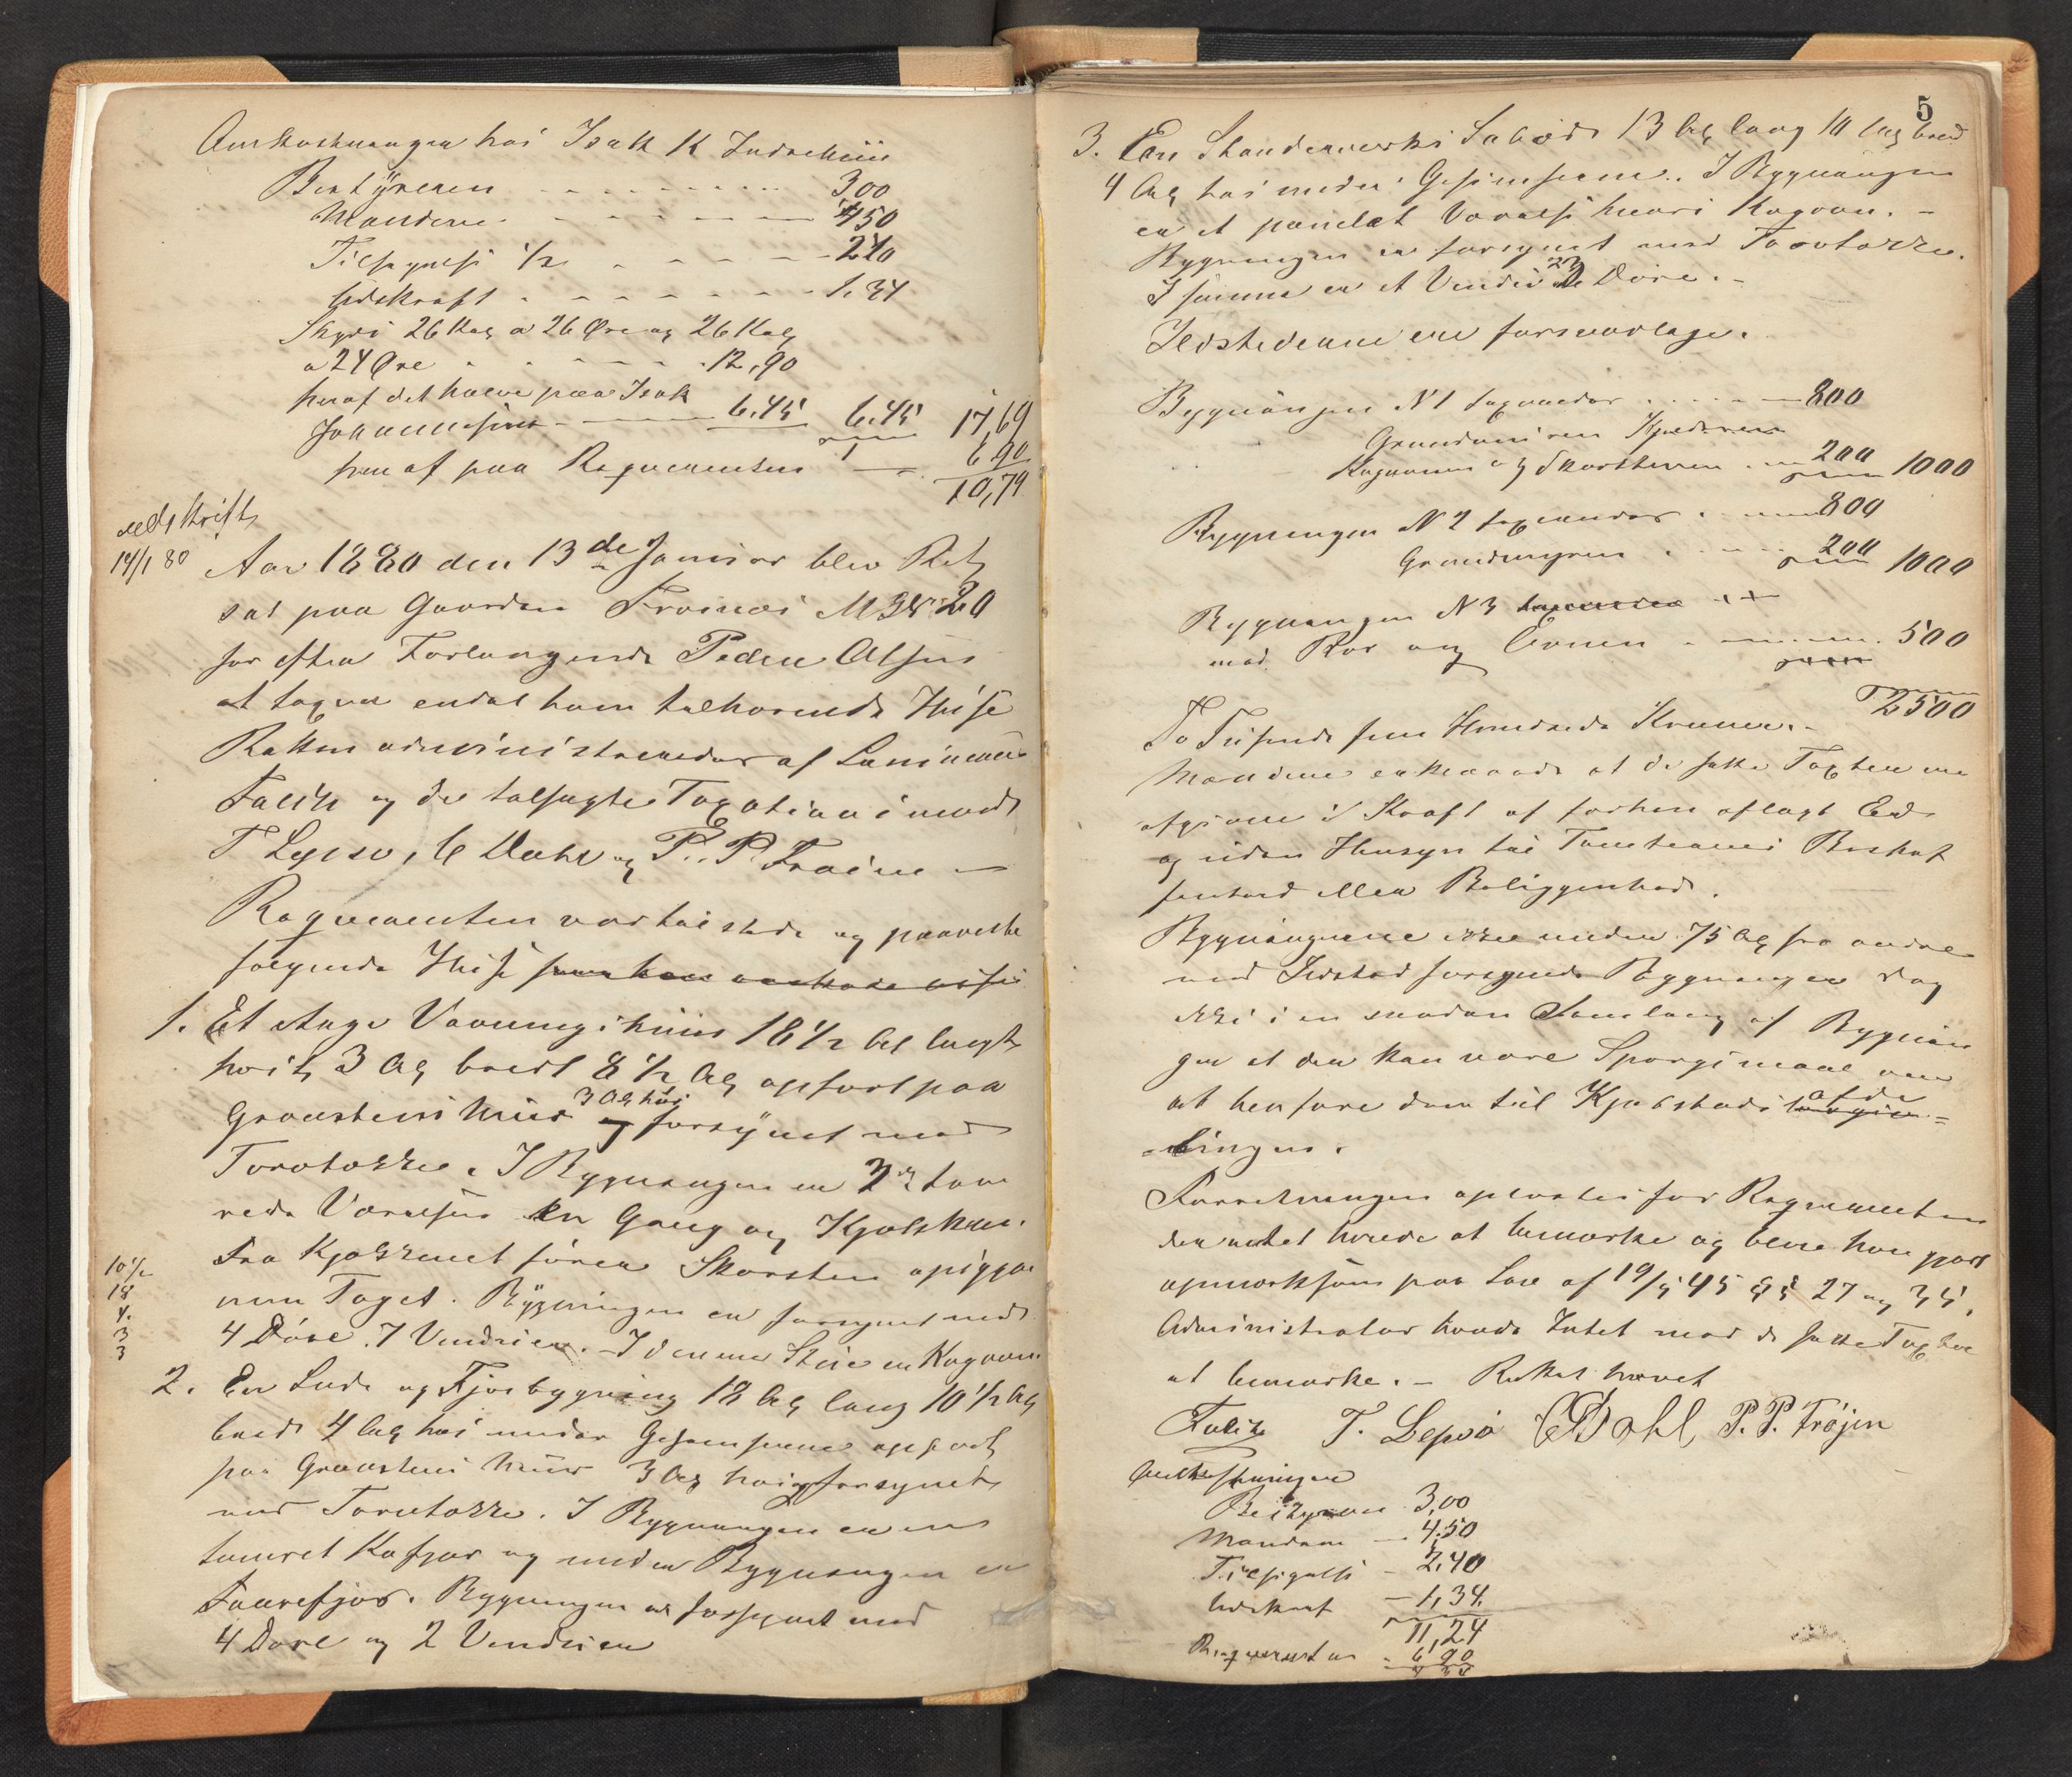 Omkostningen hos Isak K
Bestyreren 300
Mændene 450
Tilsigelse 1/2 240
Udskrift 1.34
Skyds 26 Kag a 26 Øre og 26 Kag
a 24 Øre 12,90
heraf det halve paa Isak
Johannesen 6.45 6.45 17,69
heraf paa Reqvirenten 6 90
10,79
Udskrift
14/1 80
Aar 1880 den 13de Januar blev Ret
sat paa Gaarden M 20
for efter Forlangende Peder Olsen
at taxere endel ham tilhørende Huse
Retten administreredes af Lensmand
Falch og de tilsagte Taxationsmænd
T Lepsø, C Dahl og P. P. Trøien
Reqvirenten var tilstede og paaviste
følgende Huse
1. Et Vaaningshuus 18 1/2 Al langt
høit 3 Al bredt 8 1/2 Al opført paa
Graasteens Muur 3 Al høi og forsynet med
Torvtække. I Bygningen er 2de tøm
rede Værelser en Gang og Kjøkken.
Fra Kjøkkenet fører Skorsten opigjen
nem Taget. Bygningen er forsynet med
4 Døre 7 Vinduer. I denne Stue er Kagovn
10 1/2
18
4.
3
3
2. En Lade og Fjøsbygning 18 Al lang 10 1/2 Al
bred 4 Al høi under Gesimserne opført
paa Graasteens Muur 3 Al høi og forsynet
med Torvtække. I Bygningen er en
tømret Kofjøs og under Bygningen er
Faarefjøs. Bygningen er forsynet med
4 Døre og 2 Vinduer
5
3. En Standerverks Sabod 13 Al lang 10 Al bred
4 Al høi under Gesimserne. I Bygningen
er et panelet Værelse hvori Kogovn. -
Bygningen er forsynet med Torvtække.
I samme er et Vindu 23 Døre. -
Ildstederne ere forsvarlige.
Bygningen N 1 taxeredes 800
Grundmuren Kjælderen
Kagovnen og Skorstenen 200 1000
Bygningen N 2 taxeredes 800
Grundmuren 200 1000
Bygningen N 3 taxeredes
med Rør og Ovnen 500
2500
To Tusinde fem Hundrede Kroner. -
Mændene erklærede at de satte Taxten
afgivne i Kraft af forhen aflagt Ed
og uden Hensyn til Tomternes Beskaf
fenhed eller Beliggenhed.
Bygningerne ikke under 75 Al fra andre
med Ildsted forsynede Bygninger og
ikke i en saadan Samling af Bygnin
ger at der kan være Spørgsmaal om
at henføre dem til Kjøbstads afde
lingen.
Forretningen oplæstes for Reqvirenten
der intet havde at bemærke og blev han gjort
opmærksom paa Lov af 19/8 45 §§ 27 og 35.
Administrator havde Intet mod de satte Taxter
at bemærke. - Rettet hævet
Falch T. Lepsø C Dahl P. P. Trøjen
Omkostningen
Bestyreren 3,00
Mændene 4.50
Tilsigelse 2,40
Udskrift 1,34
11,24
Reqvirenten 6 90